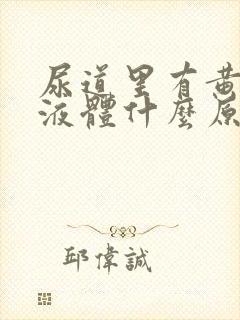 尿道里有黄
液體什麼原
邱偉誠